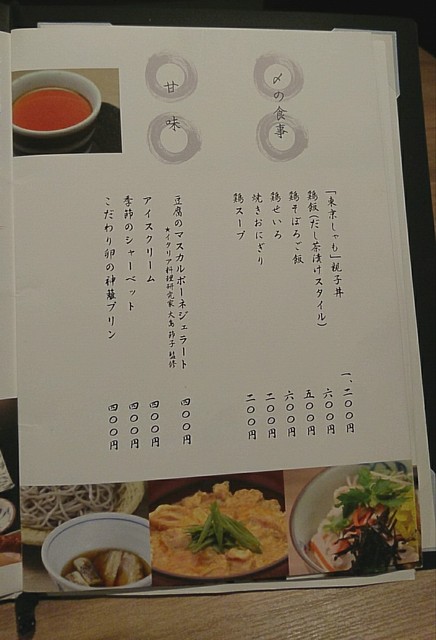 〆の食事
「東京しゃも」親子丼 一、二〇〇円
鶏飯(だし茶漬けスタイル) 六〇〇円
鶏そぼろご飯 五〇〇円
鶏せいろ 六〇〇円
焼きおにぎり 二〇〇円
鶏スープ 二〇〇円
甘味
豆腐のマスカルポーネジェラート 四〇〇円
★イタリア料理研究家 大島節子 監修
アイスクリーム 四〇〇円
季節のシャーベット 四〇〇円
こだわり卵の神薙プリン 四〇〇円